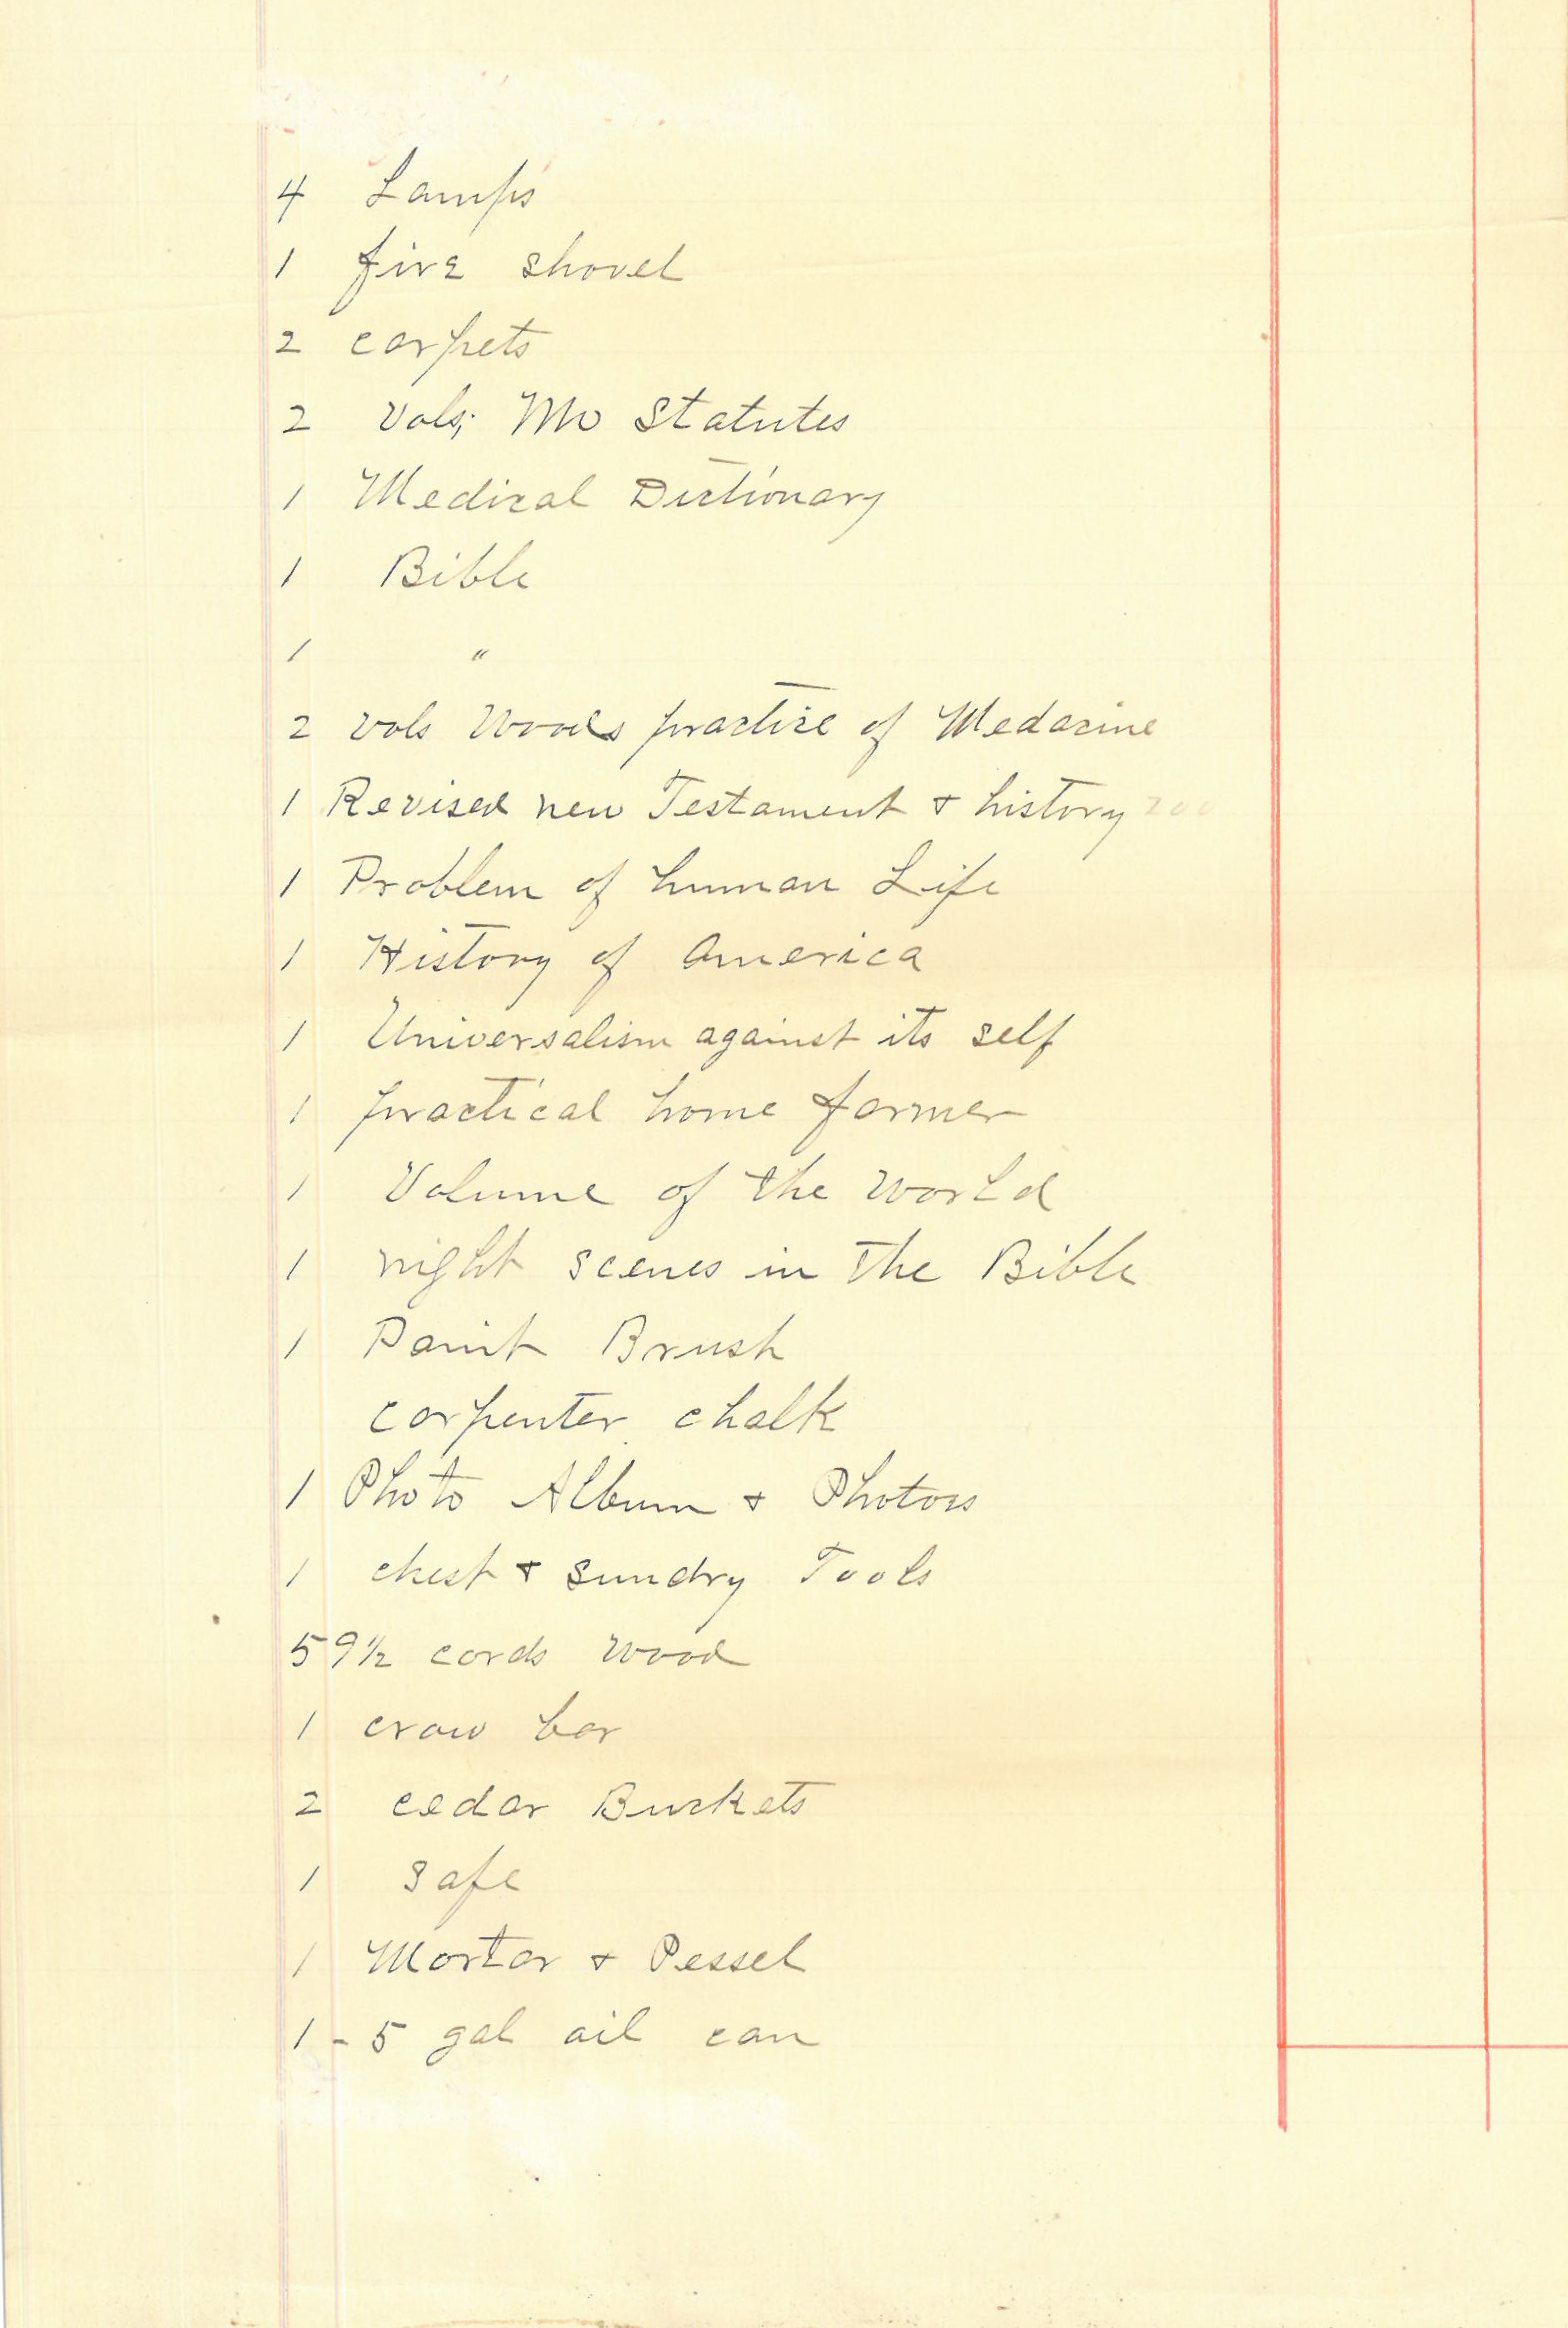 4 Lamps
1 fire shovel
2 carpets
2 Vols; Mo Statutes
1 Medical Dictionary
1 Bible
1 "
2 vols Woods practice of Medacine
1 Revised new Testament & history
1 Problem of human Life
1 History of America
1 Universalism against its self
1 practical home farmer
1 Volume of the World
1 night scenes in the Bible
1 Paint Brush
carpenter chalk
1 Photo Album & Photos
1 chest & sundry Tools
59½ cords wood
1 crow bar
2 cedar Buckets
1 safe
1 Mortar & Pessel
1 - 5 gal oil can